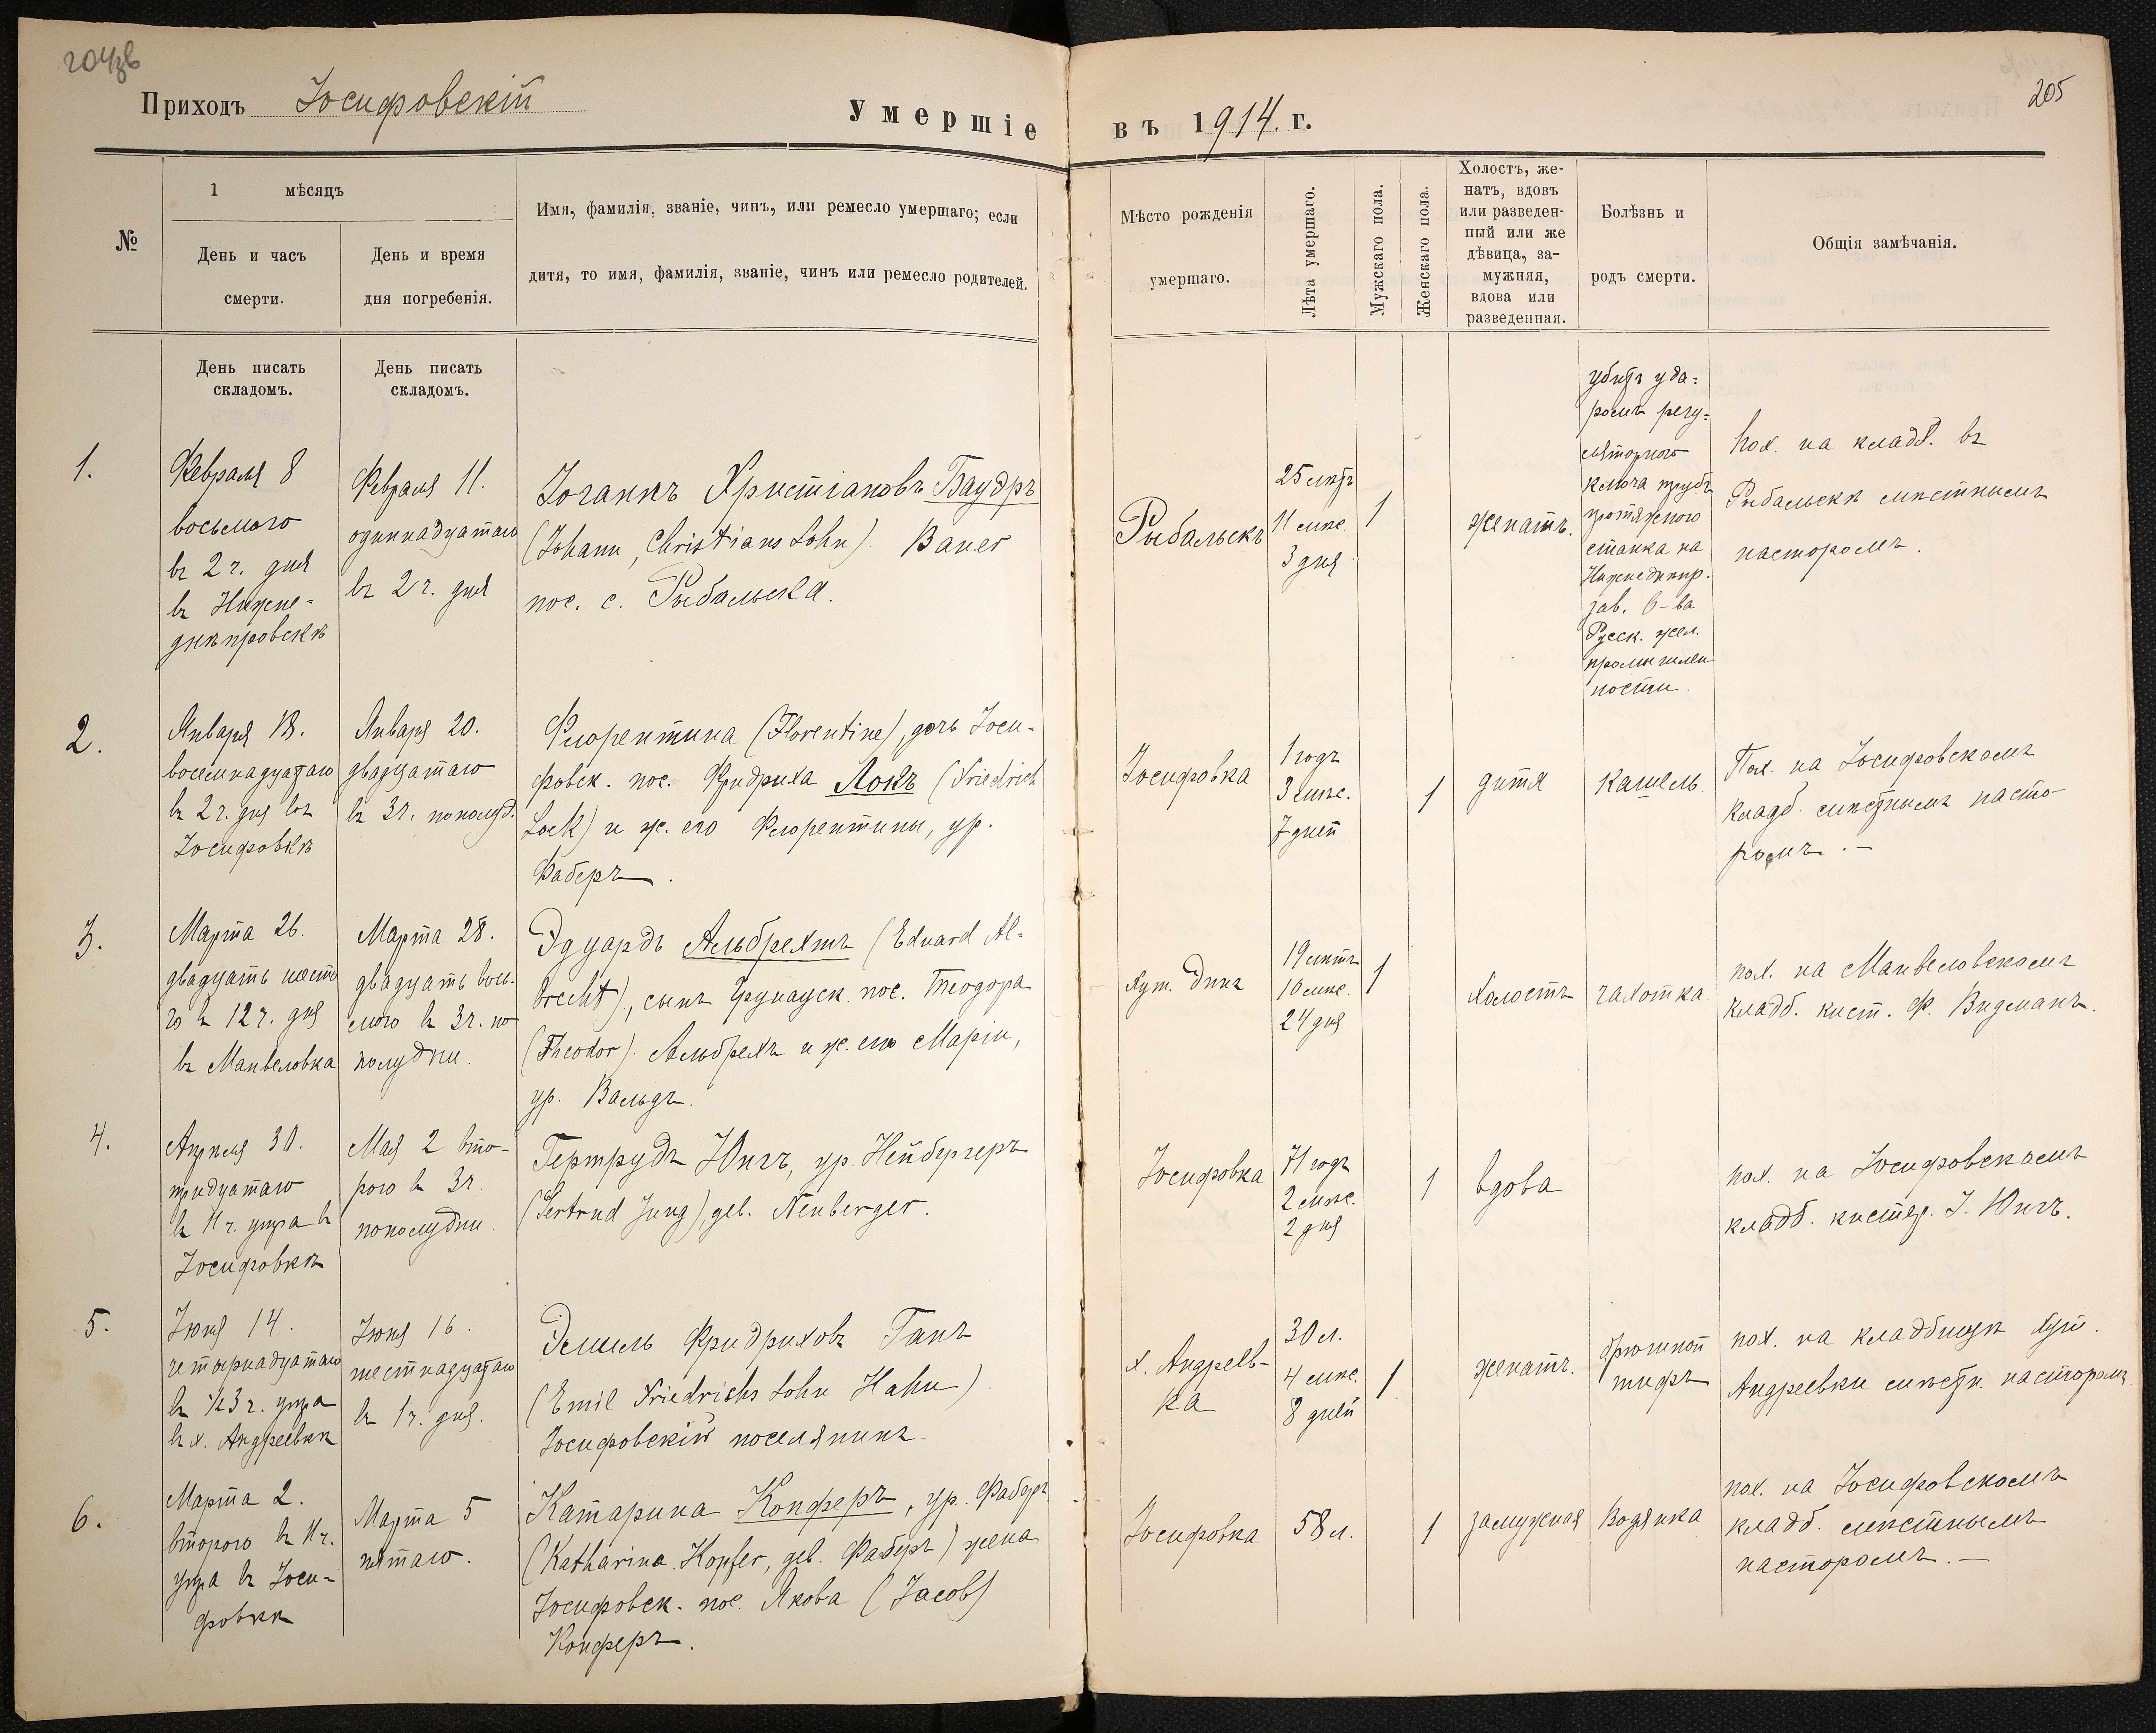 204об
Приходъ Іосифовскій
Умершіе
въ 1914 г.
205
№
1 мѣсяцъ
День и часъ
смерти.
День и время
дня погребенія.
Имя, фамилія, званіе, чинъ, или ремесло умершаго; если
дитя, то имя, фамилія, званіе, чинъ или ремесло родителей.
Мѣсто рожденія
умершаго.
Лѣта умершаго.
Мужскаго пола.
Женскаго пола.
Холостъ, же-
натъ, вдовъ
или разведен-
ный или же
дѣвица, за-
мужняя,
вдова или
разведенная.
Болѣзнь и
родъ смерти.
Общія замѣчанія.
День писать
складомъ.
День писать
складомъ.
1.
Февраля 8
восьмого
въ 2 ч. дня
въ Нижне-
днѣпровскѣ
Февраля 11.
одиннадцатаго
въ 2 ч. дня
Іоганнъ Христіановъ Бауэръ
(Johann, Christians Sohn) Bauer
пос. с. Рыбальска.
Рыбальскъ
25 лѣтъ
11 мѣс.
3 дня
1
женатъ.
убитъ уда=
ромъ регу=
ляторного
ключа трубъ
протяжного
станка на
Нижнеднѣпр.
зав. О-ва
Русск. жел.
промышлен
ности.
Пох. на кладб. въ
Рыбальскѣ мѣстнымъ
пасторомъ.
2.
Января 18.
восемнадцатаго
въ 2 ч. дня въ
Іосифовкѣ
Января 20.
двадцатаго
въ 3 ч. пополуд.
Флорентина (Florentine), дочь Іоси-
фовск. пос. Фридриха Локъ (Friedrich
Lock) и ж. его Флорентины, ур.
Фаберъ.
Іосифовка
1 годъ
3 мѣс.
7 дней
1
дитя
кашель
Пох. на Іосифовскомъ
кладб. мѣстнымъ пасто-
ромъ. –
3.
Марта 26.
двадцать шесто
го въ 12 ч. дня
въ Манвеловка
Марта 28.
двадцать вось-
мого въ 3 ч. по
полудни.
Эдуардъ Альбрехтъ (Eduard Al-
brecht), сынъ пос. Теодора
(Theodor) Альбрехъ и ж. его Маріи,
ур. Вальдъ.
хут.
19 лѣтъ
10 мѣс.
24 дня
1
холостъ
чахотка
пох. на Манвеловскомъ
кладб. кист. Ф. Видманъ.
4.
Апрѣля 30.
тридцатаго
въ 11 ч. утра въ
Іосифовкѣ
Мая 2 вто-
рого въ 3 ч.
пополудни
Гертрудъ Юнгъ, ур. Нейбергеръ
(Gertrud Jung), geb. Neuberger.
Іосифовка
71 годъ
2 мѣс.
2 дня
1
вдова
пох. на Іосифовскомъ
кладб. кистер. І. Юнгъ.
5.
Іюня 14.
четырнадцатаго
въ ½3 ч. утра
въ х. Андреевкѣ
Іюня 16.
шестнадцатаго
въ 1 ч. дня.
Эмиль Фридриховъ Ганъ
(Emil Friedrichs Sohn Hahn)
Іосифовскій поселянинъ
х. Андреев-
ка
30 л.
4 мѣс.
8 дней
1
женатъ.
брюшной
тифъ
пох. на кладбищѣ хут.
Андреевки мѣстн. пасторомъ
6.
Марта 2.
второго въ 11 ч.
утра въ Іоси-
фовкѣ
Марта 5
пятаго.
Катарина Копферъ, ур. Фаберъ
(Katharina Kopfer, geb. Фаберъ) жена
Іосифовск. пос. Якова (Jacob)
Копферъ.
Іосифовка
58 л.
1
замужная
водянка
пох. на Іосифовскомъ
кладб. мѣстнымъ
пасторомъ. –